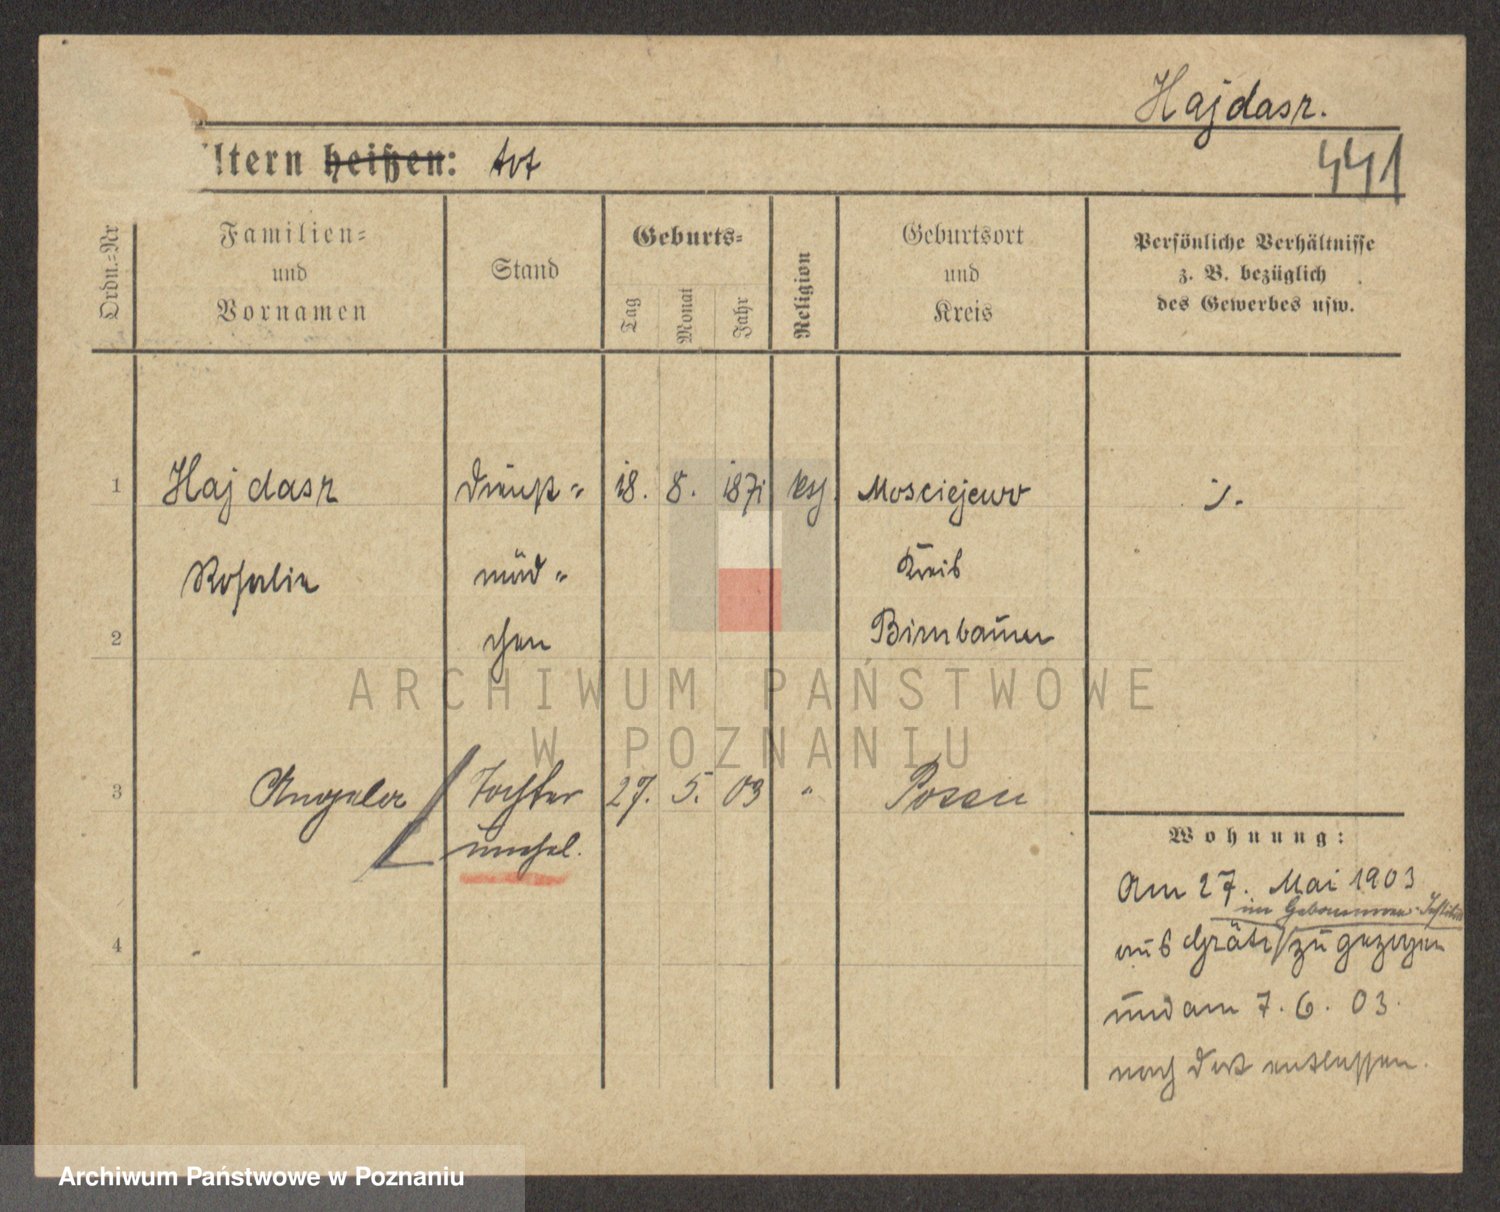 Hajdasz.
ltern heißen: tot
441
Ordn.=Nr
Familien=
und
Vornamen
Stand
Geburts=
Tag
Monat
Jahr
Religion
Geburtsort
und
Kreis
Persönliche Verhältnisse
z. B. bezüglich
des Gewerbes usw.
1 Hajdasz Dienst= 18. 8. 1871 ksh. Mosciejewo ./.
Rosalie mäd= Kreis
2 chen Birnbaum
ARCHIWUM PAŃSTWOWE
W POZNANIU
3 Angela Tochter 27. 5. 03 " Posen
unehel.
Wohnung:
Am 27. Mai 1903
im Hebammen-Institut
4 aus Grätz zugezogen
und am 7. 6. 03.
nach dort entlassen.
Archiwum Państwowe w Poznaniu